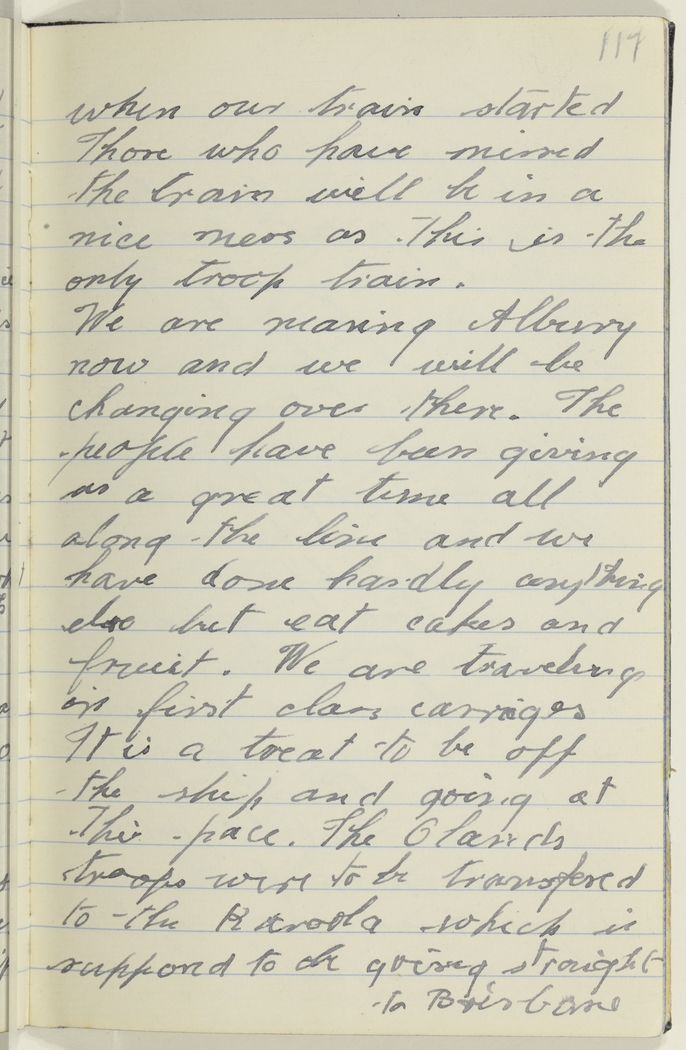 117
when our train started
Those who have missed
the train will be in a
nice mess as this is the
only troop train.
We are nearing Albury
now and we will be
changing over there. The
people have been giving
us a great time all
along the line and we
have done hardly anything
else but eat cakes and
fruit. We are traveling
in first class carriges
It is a treat to be off
the ship and going at
this pace. The Qlands
troops were to be transfered
to the Karoola which is
supposed to be going straight
to Brisbane